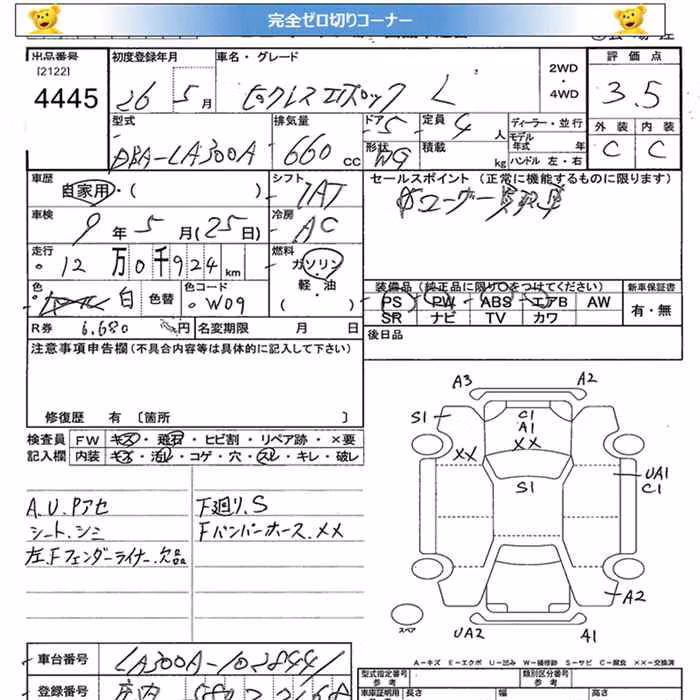 完全ゼロ切りコーナー
出品番号
[2122]
4445
初度登録年月
26 5月
車名・グレード
ピクシスエポック L
2WD
・
4WD
評価点
3.5
型式
DBA-LA300A
排気量
660 cc
ドア 5
形状 WG
定員 4 人
積載 kg
ディーラー・並行
モデル年式 年
ハンドル 左・右
外装 内装
C C
車歴
自家用・( )
シフト
IAT
セールスポイント (正常に機能するものに限ります)
車検
9年 5月(25日)
冷房
AC
走行
12万0千924 km
燃料
ガソリン
軽・油
( )
色
白
色替
色コード
W09
装備品(純正品に限り○をつけてください)
PS PW ABS エアB AW
SR ナビ TV カワ
新車保証書
有・無
R券 6,680 円
名変期限 月 日
後日品
注意事項申告欄(不具合内容等は具体的に記入して下さい)
修復歴 有 [箇所 ]
検査員
記入欄
FW キズ・飛石・ヒビ割・リペア跡・×要
内装 キズ・汚れ・コゲ・穴・スレ・キレ・破レ
A.U.Pアセ
シート.シミ
左.Fフェンダーライナー.欠品
下廻り.S
Fバンパーホース.××
A3 A2
S1
C1
A1
××
××
S1
UA1
C1
A2
UA2 A1
スペア
A-キズ E-エクボ U-凹み W-補修跡 S-サビ C-腐食 ××-交換済
車台番号
LA300A-1028441
登録番号
型式指定番号
参考
類別区分番号
参考
車庫証明用
参考
長さ 幅 高さ